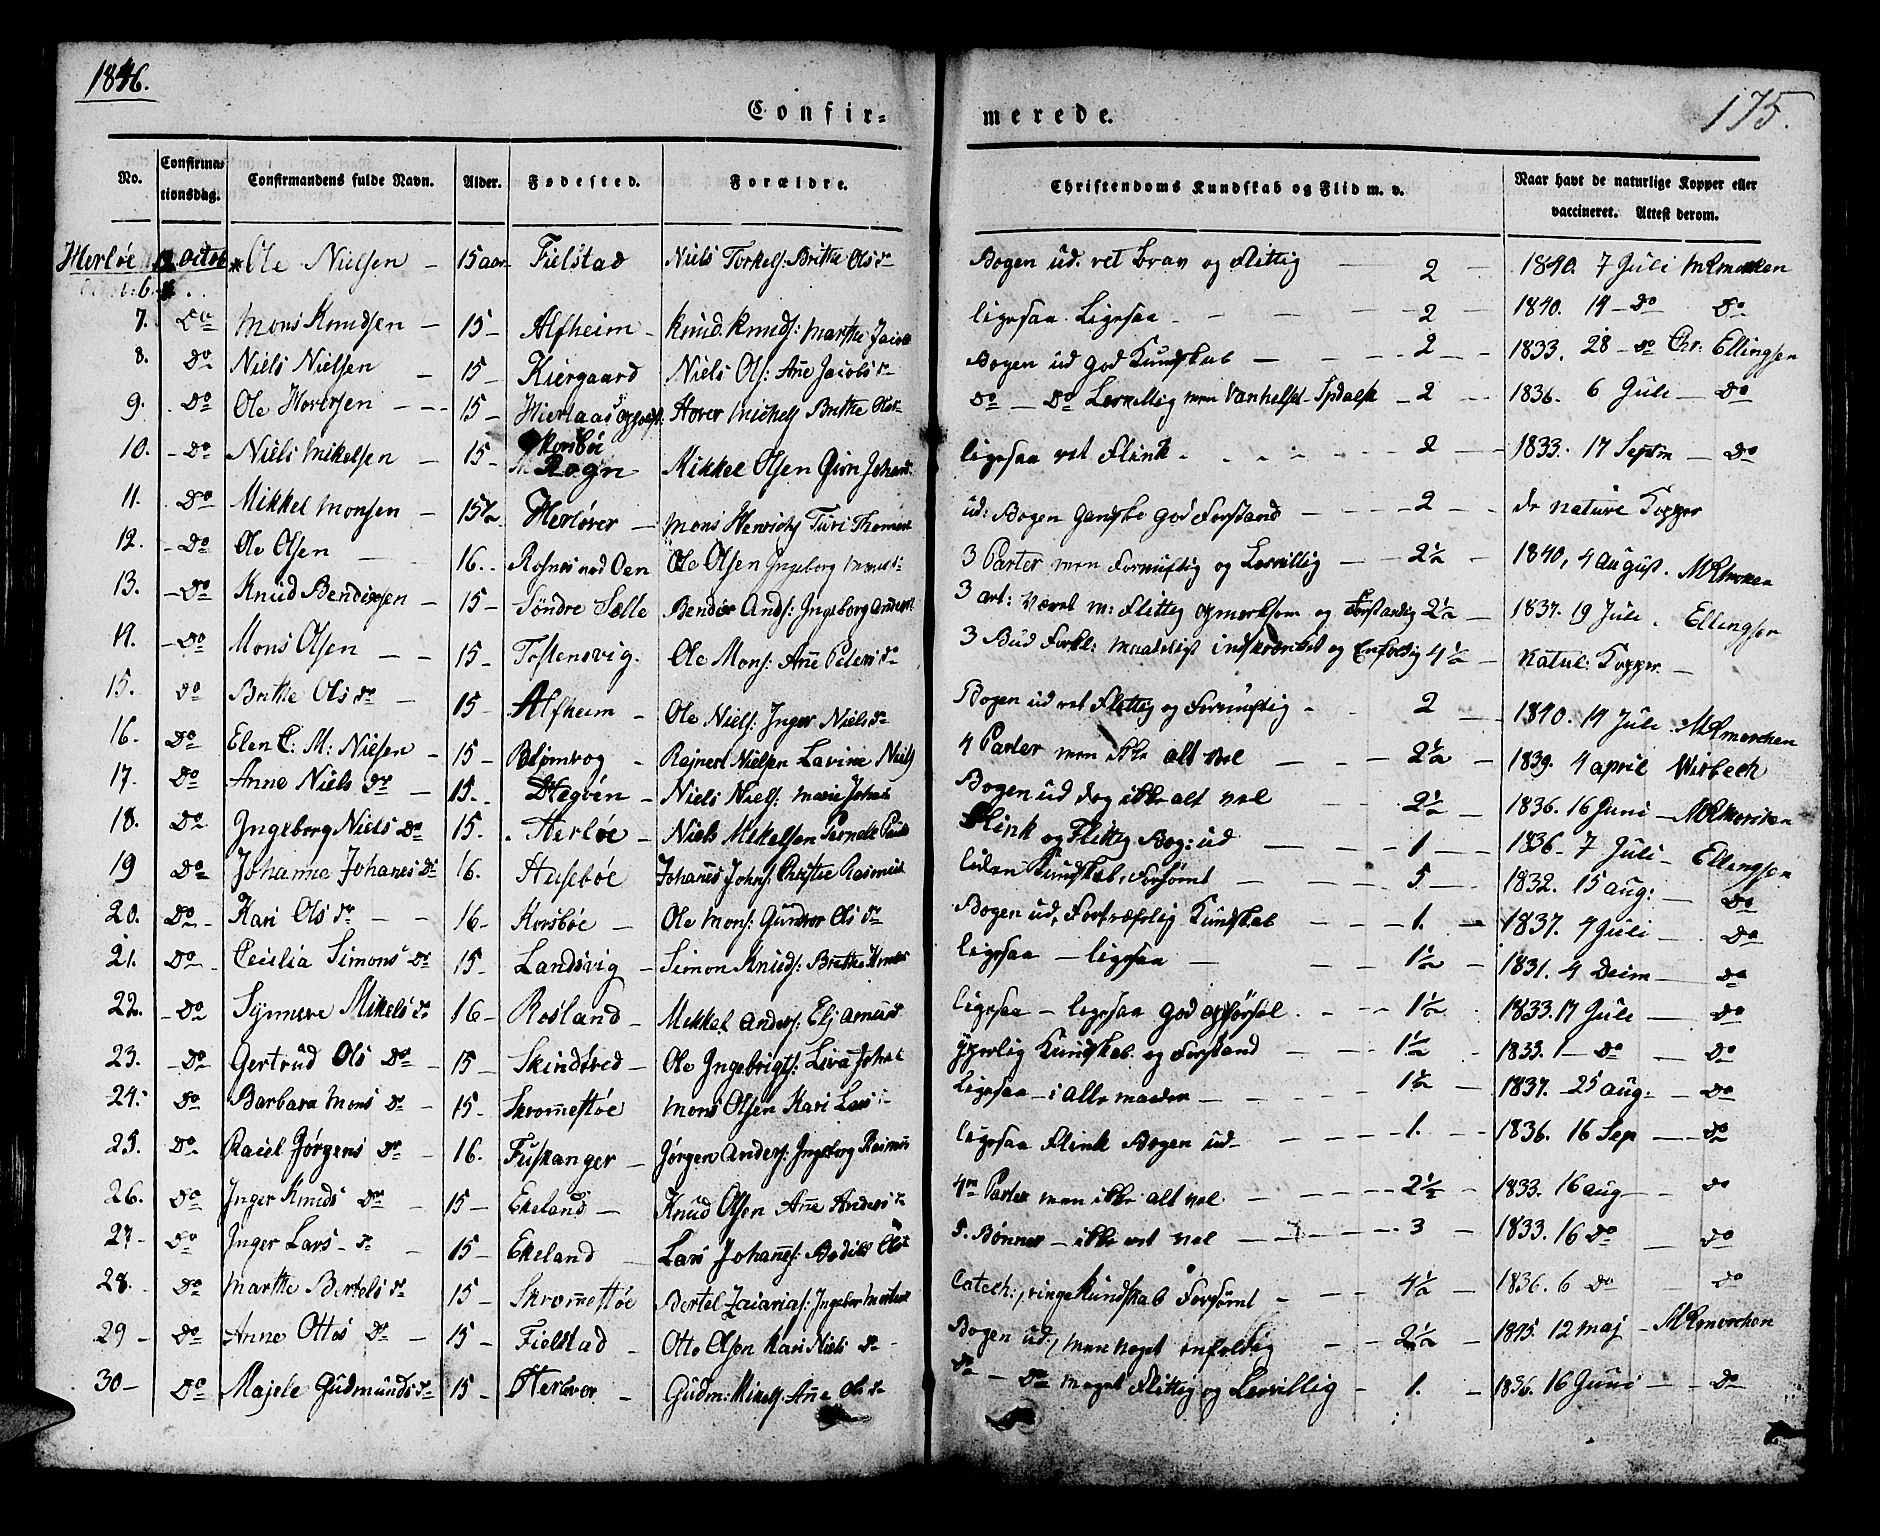 1846.
175.
Confir- merede.
No. Confirma-tionsdag. Confirmandens fulde Navn. Alder. Fødested. Forældre. Christendoms Kundskab og Flid m. v. Naar havt de naturlige Kopper eller vaccineret. Attest derom.
Herløe octob Ole Nielsen - 15 aar Fielstad Niels Torkels: Brithe Ols dr Bogen ud. ret brav og flittig - 2 - 1840. 7 Juli
6.
7. Do Mons Knudsen - 15 - Alfheim - Knud Knuds: Marthe Jacob ligesaa Ligesaa - 2 1840. 14 - Do Do
8. Do Niels Nielsen - 15 - Kiergaard Niels Ols: Ane Jacobs dr Bogen ud god Kundskab - 2 - 1833. 28 - Do Chr: Ellingsen
9. Do Ole Hoversen - 15 - Hover Michels Brithe Do - Do Lærvillig men - 2 1836. 6 Juli - Do
10. - Do Niels Mikelsen - 15 - Rogn Mikkel Olsen Johans ligesaa ret Flink - 2 - 1833. 17 Septm - Do
11. - Do Mikkel Monsen - 15½ Herløver - Mons Henrichs Turi Thomæs ud: Bogen ganske god Forstand - 2 - de nature Kopper
12. - Do Ole Olsen - 16. Oen Ole Olsen Ingeborg Mons dr 3 Parter men Fornuftig og Lærvillig - 2½ - 1840, 4 August.
13. - Do Knud Bendixsen - 15 - Søndre Sælle Bendix Ands: Ingeborg Anders 3 art: Været m: Flittig opmerksom og Forstandig 2½ - 1837. 19 Juli. Ellingsen
14. - Do Mons Olsen - 15 - Tostensvig. Ole Mons: Ane Peders dr 3 Bud Forkl: maadeligt indskrænket og Enfoldig 4½ - Natul: Kopper.
15. Do Brithe Ols dr - 15 - Alfheim - Ole Niels: Inger Niels dr Bogen ud ret Flittig og Fornuftig - 2 - 1840. 14 Juli
16. Do Elen C: M: Nielsen - 15 - Blomvog - Rejnert Nielsen Lavine Niels 4 Parter men ikke alt vel - 2½ - 1839. 4 april Wirbech
17. Do Anne Niels dr - 15. Hegøen - Niels Niels: Marie Johans Bogen ud dog ikke alt vel - 2½ - 1836. 16 Juni -
18. Do Ingeborg Niels Dr 15. Herløe - Niels Mikelsen Pernele Flink og Flittig Bog: ud - 1 - 1836. 7 Juli - Ellingsen
19 Do Johanne Johanes Dr 16. Husebøe Johanes Johns: Christie Rasmus liden Kundskab, Forsømt - 5 - 1832. 15 aug: - Do
20. Do Kari Ols dr - 16 - Korsbøe - Ole Mons: Gunder Ols dr Bogen ud, Fortræfelig Kundskab - 1. - 1837. 4 Juli - Do
21. Do Cecilia Simons Dr 15 - Landsvig - Simon Knuds: Brithe ligesaa - ligesaa - 1½ 1831. 4 Deim - Do
22. - Do Synneve Mikels dr 16 - Rosland - Mikkel Anders: Elj ligesaa - ligesaa God opførsel - 1½ 1833. 17 Juli - Do
23. - Do Gertrud Ols Dr - 15 - Skindsted - Ole Ingebrigts: Johans ypperlig Kundskab og Forstand - 1½ - 1833. 1 - Do - Do
24. Do Barbara Mons Dr - 15 - Skromestøe Mons Olsen Kari Lars ligesaa - i alle maader - 1½ - 1837. 25 aug: - Do
25. Do Jørgens Dr - 16. Fuskanger - Jørgen Anders: Ingeborg Rasmus ligesaa Flink Bogen ud - 1. - 1836. 16 Sep - Do
26. Do Inger Knuds Dr - 15 - Ekeland - Knud Olsen Ane Anders dr 4re Parter men ikke alt vel - 2½ - 1833. 16 aug - Do
27 - Do Inger Lars - dr - 15 - Ekeland - Lars Johanes: 5. Bønner - ikke ret vel - 3 - 1833. 16 Do - Do
28. Do Marthe Bertels dr 15 - Skromestøe Bertel Zaiarias: Catech:, ringe Kundskab Forsømt - 4½ - 1836. 6 Do - Do
29 - Do Anne Ottos Dr - 15 - Fielstad - Otto Olsen Kari Niels Dr Bogen ud, men noget enfoldig - 2½ 1845. 12 maj -
30 - Do Majele Gudmunds dr 15 - Herlover - Gudm: Mikels: Ane Ols dr Do - Do meget Flittig og Lærvillig - 1. - 1836. 16 Juni - Do